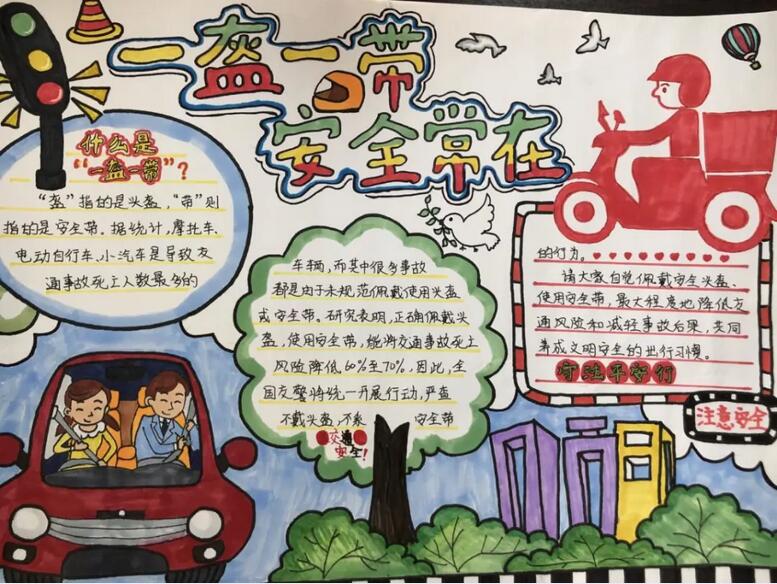 一盔一带
安全常在
什么是
"一盔一带"?
"盔"指的是头盔,"带"则
指的是安全带。据统计,摩托车、
电动自行车、小汽车是导致交
通事故死亡人数最多的
车辆,而其中很多事故
都是由于未规范佩戴使用头盔
或安全带。研究表明,正确佩戴头
盔、使用安全带,能将交通事故死亡
风险降低60%至70%,因此,全
国交警将统一开展行动,严查
不戴头盔、不系 安全带
交通
安全!
的行为。
请大家自觉佩戴安全头盔、
使用安全带,最大程度地降低交
通风险和减轻事故后果,共同
养成文明安全的出行习惯。
守法平安行
注意安全